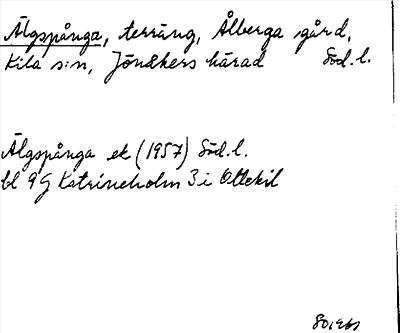 Älgspånga, terräng, Ålberga gård,
Kila s:n, Jönåkers härad Söd.l.
Älgspånga ek (1957) Söd.l.
bl 9G Katrineholm 3i